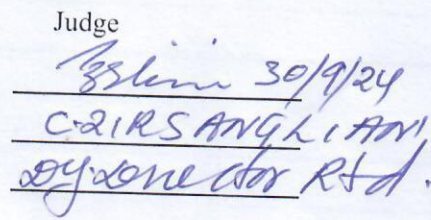 Judge
30/9/24
C. ZIRSANGLIANI
Dy. Director Rtd.